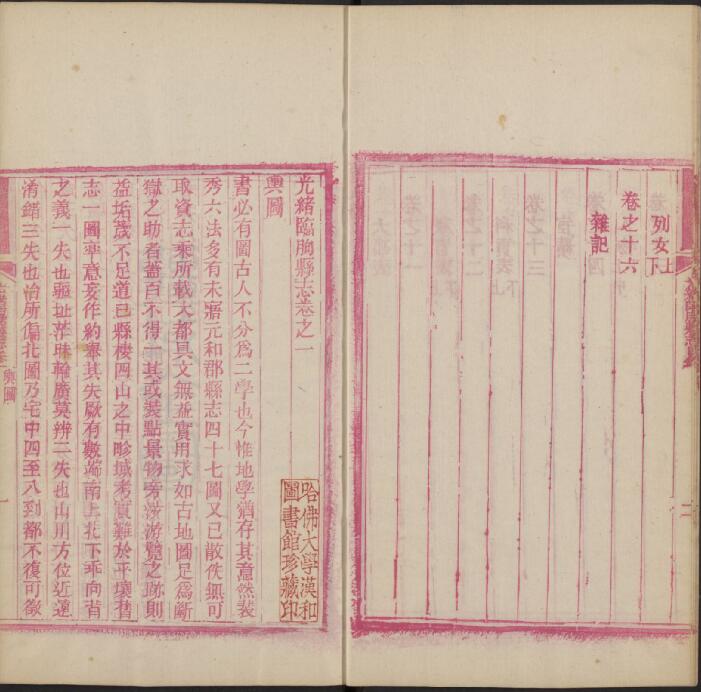 列女上下
卷之十六
雜記
二
光緒臨朐縣志卷之一
輿圖
書必有圖古人不分爲二學也今惟地學猶存其意然裴
秀六法多有未寤元和郡縣志四十七圖又已散佚無可
取資志乘所載大都具文無益實用求如古地圖足爲斷
獄之助者蓋百不得一其或裝點景物旁涉游覽之跡則
益垢蔑不足道已縣棲四山之中畛域考實難於平壤舊
志一圖率意妄作約舉其失厥有數端南上北下乖向背
之義一失也疆址茫昧輪廣莫辨二失也山川方位近遠
淆錯三失也冶所偏北圖乃宅中四至八到都不復可徵
輿圖
一
哈佛大學漢和
圖書館珍藏印